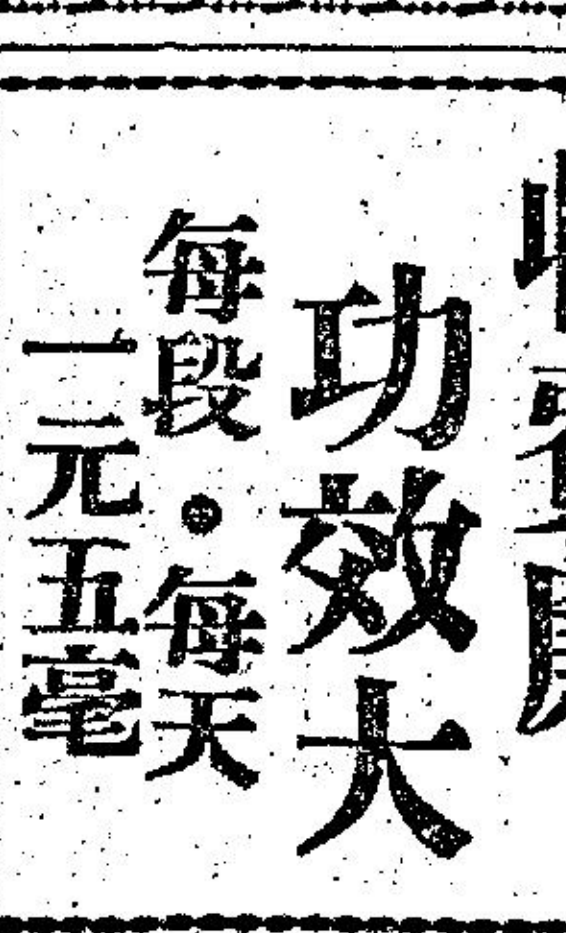 功效大
每段·每天
一元五毫